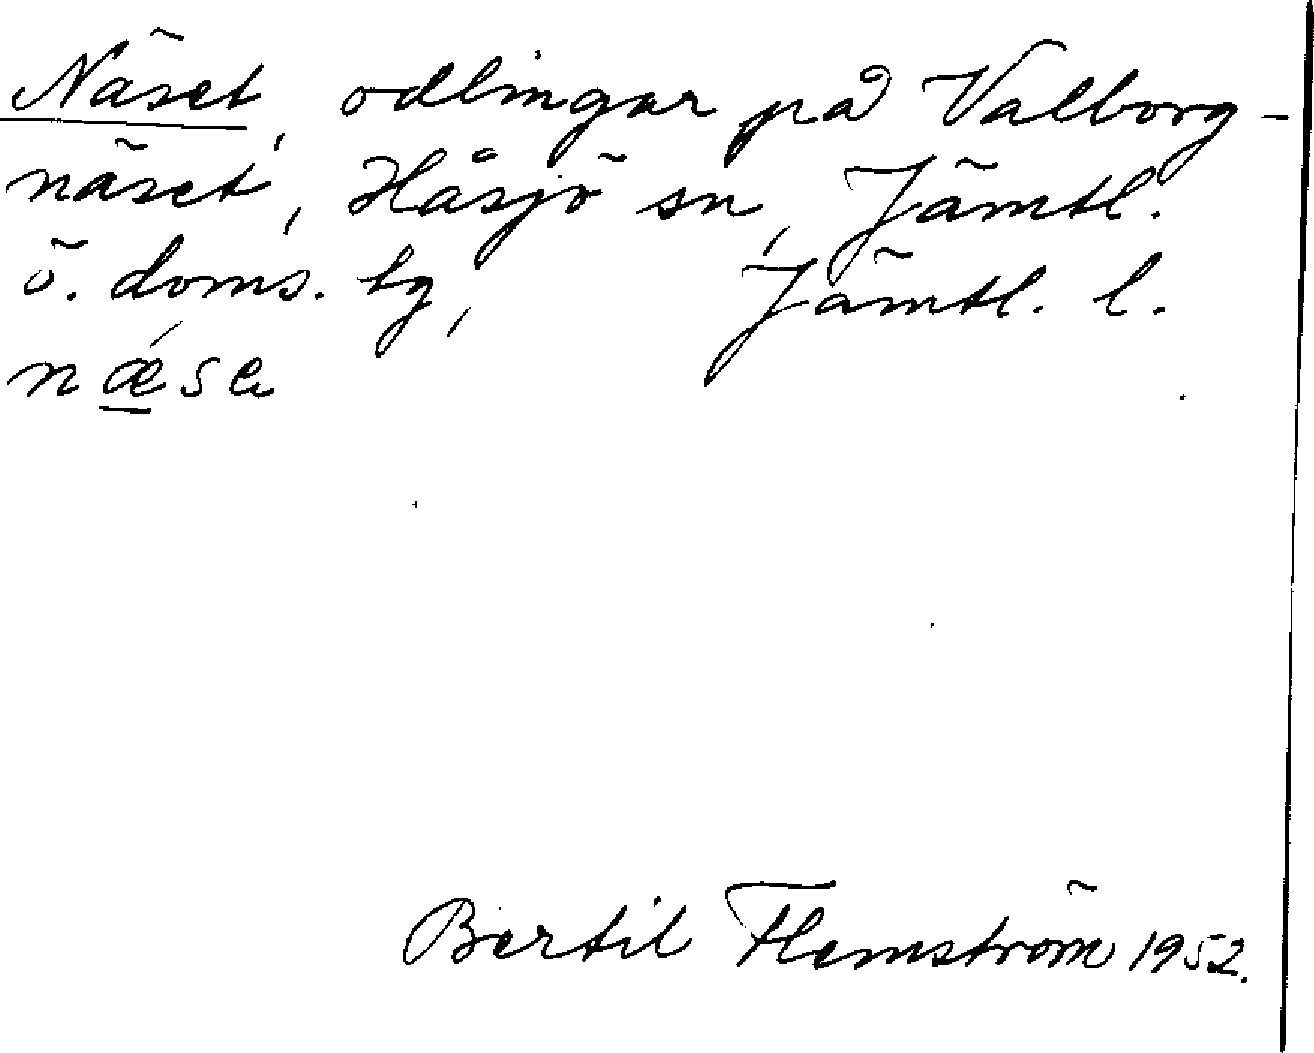 Näset, odlingar på Valborg-
näset, Håsjö sn, Jämtl.
ö. doms. tg, Jämtl. l.
nǽsa
Bertil Flemström 1952.